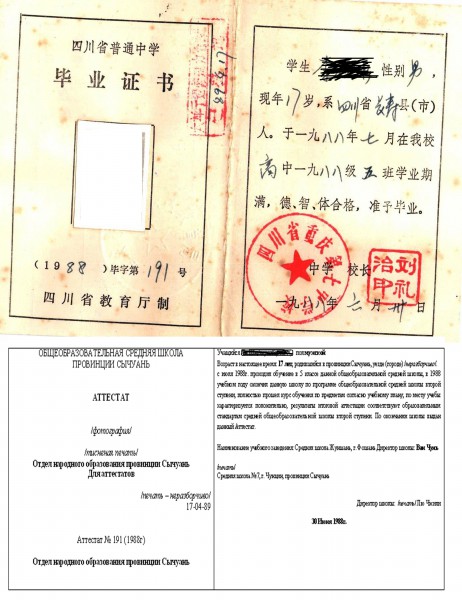 四川省普通中学
毕业证书
(1988)毕字第191号
四川省教育厅制
学生 性别男，
现年17岁，系四川省长寿县（市）
人。于一九八八年七月在我校
高中一九八八级五班学业期
满，德、智、体合格，准予毕业。
四川省重庆第七中学校
中学 校长
刘礼治印
一九八八年六月卅日
ОБЩЕОБРАЗОВАТЕЛЬНАЯ СРЕДНЯЯ ШКОЛА
ПРОВИНЦИИ СЫЧУАНЬ
АТТЕСТАТ
/фотография/
/тисненая печать/
Отдел народного образования провинции Сычуань
Для аттестатов
/печать – неразборчиво/
17-04-89
Аттестат № 191 (1988г)
Отдел народного образования провинции Сычуань
Учащийся пол мужской
Возраст в настоящее время: 17 лет, родившийся в провинции Сычуань, уезде (городе) /неразборчиво/
с июня 1988г. проходил обучение в 5 классе данной общеобразовательной средней школы, в 1988
учебном году окончил данную школу по программе общеобразовательной средней школы второй
ступени, полностью прошел курс обучения по предметам согласно учебному плану, по месту учебы
характеризуется положительно, результаты итоговой аттестации соответствуют образовательным
стандартам средней школы второй ступени. По окончании школы выдан
данный Аттестат.
Наименование учебного заведения: Средняя школа Жуншань, г. Фошань Директор школы: Ван Чунь
/печать/
Средняя школа №7, г. Чунцин, провинция Сычуань
Директор школы: /печать/ Лю Чжичи
30 Июня 1988г.